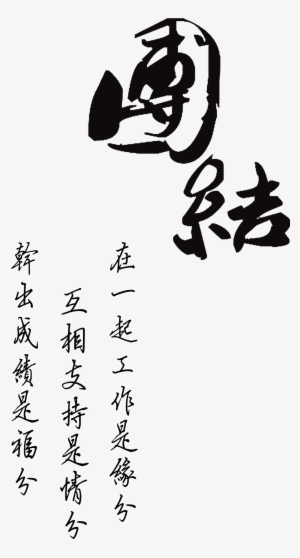 團結
在一起工作是緣分
互相支持是情分
幹出成績是福分